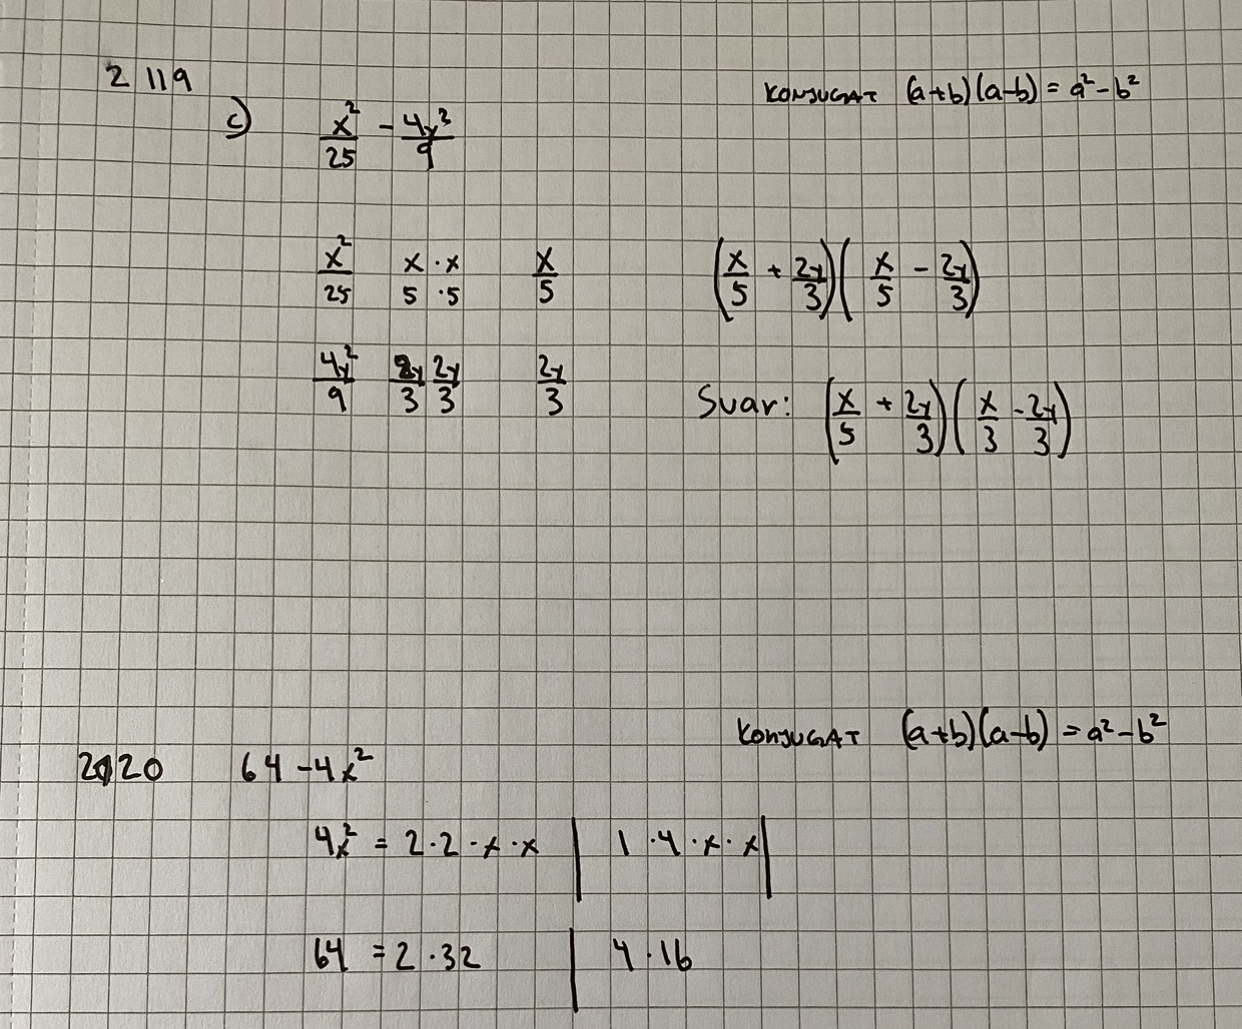 2119
KONJUGAT (a+b)(a-b) = a² - b²
c) x²/25 - 4y²/9
x²/25 x·x/5·5 x/5
(x/5 + 2y/3)(x/5 - 2y/3)
4y²/9 2y/3 2y/3 2y/3
Svar: (x/5 + 2y/3)(x/3 - 2y/3)
KONJUGAT (a+b)(a-b) = a² - b²
2120 64 - 4x²
4x² = 2·2·x·x | 1·4·x·x|
64 = 2·32 | 4·16